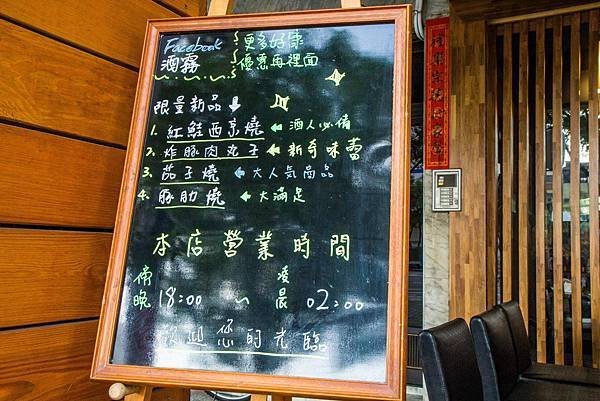 Facebook
酒霧
更多好康
優惠再裡面
限量新品
1. 紅鮭西京燒 酒人必備
2. 炸豚肉丸子 新奇味蕾
3. 茄子燒 大人氣商品
4. 豚肋燒 大滿足
本店營業時間
傍晚 18:00 ~ 凌晨 02:00
歡迎您的光臨